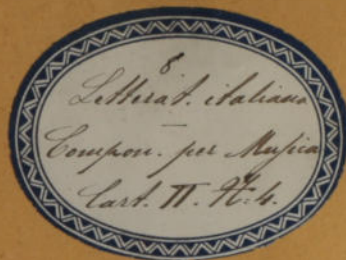 8
Letterat. italiana
Compon. per Musica
Cart. II. N. 4.